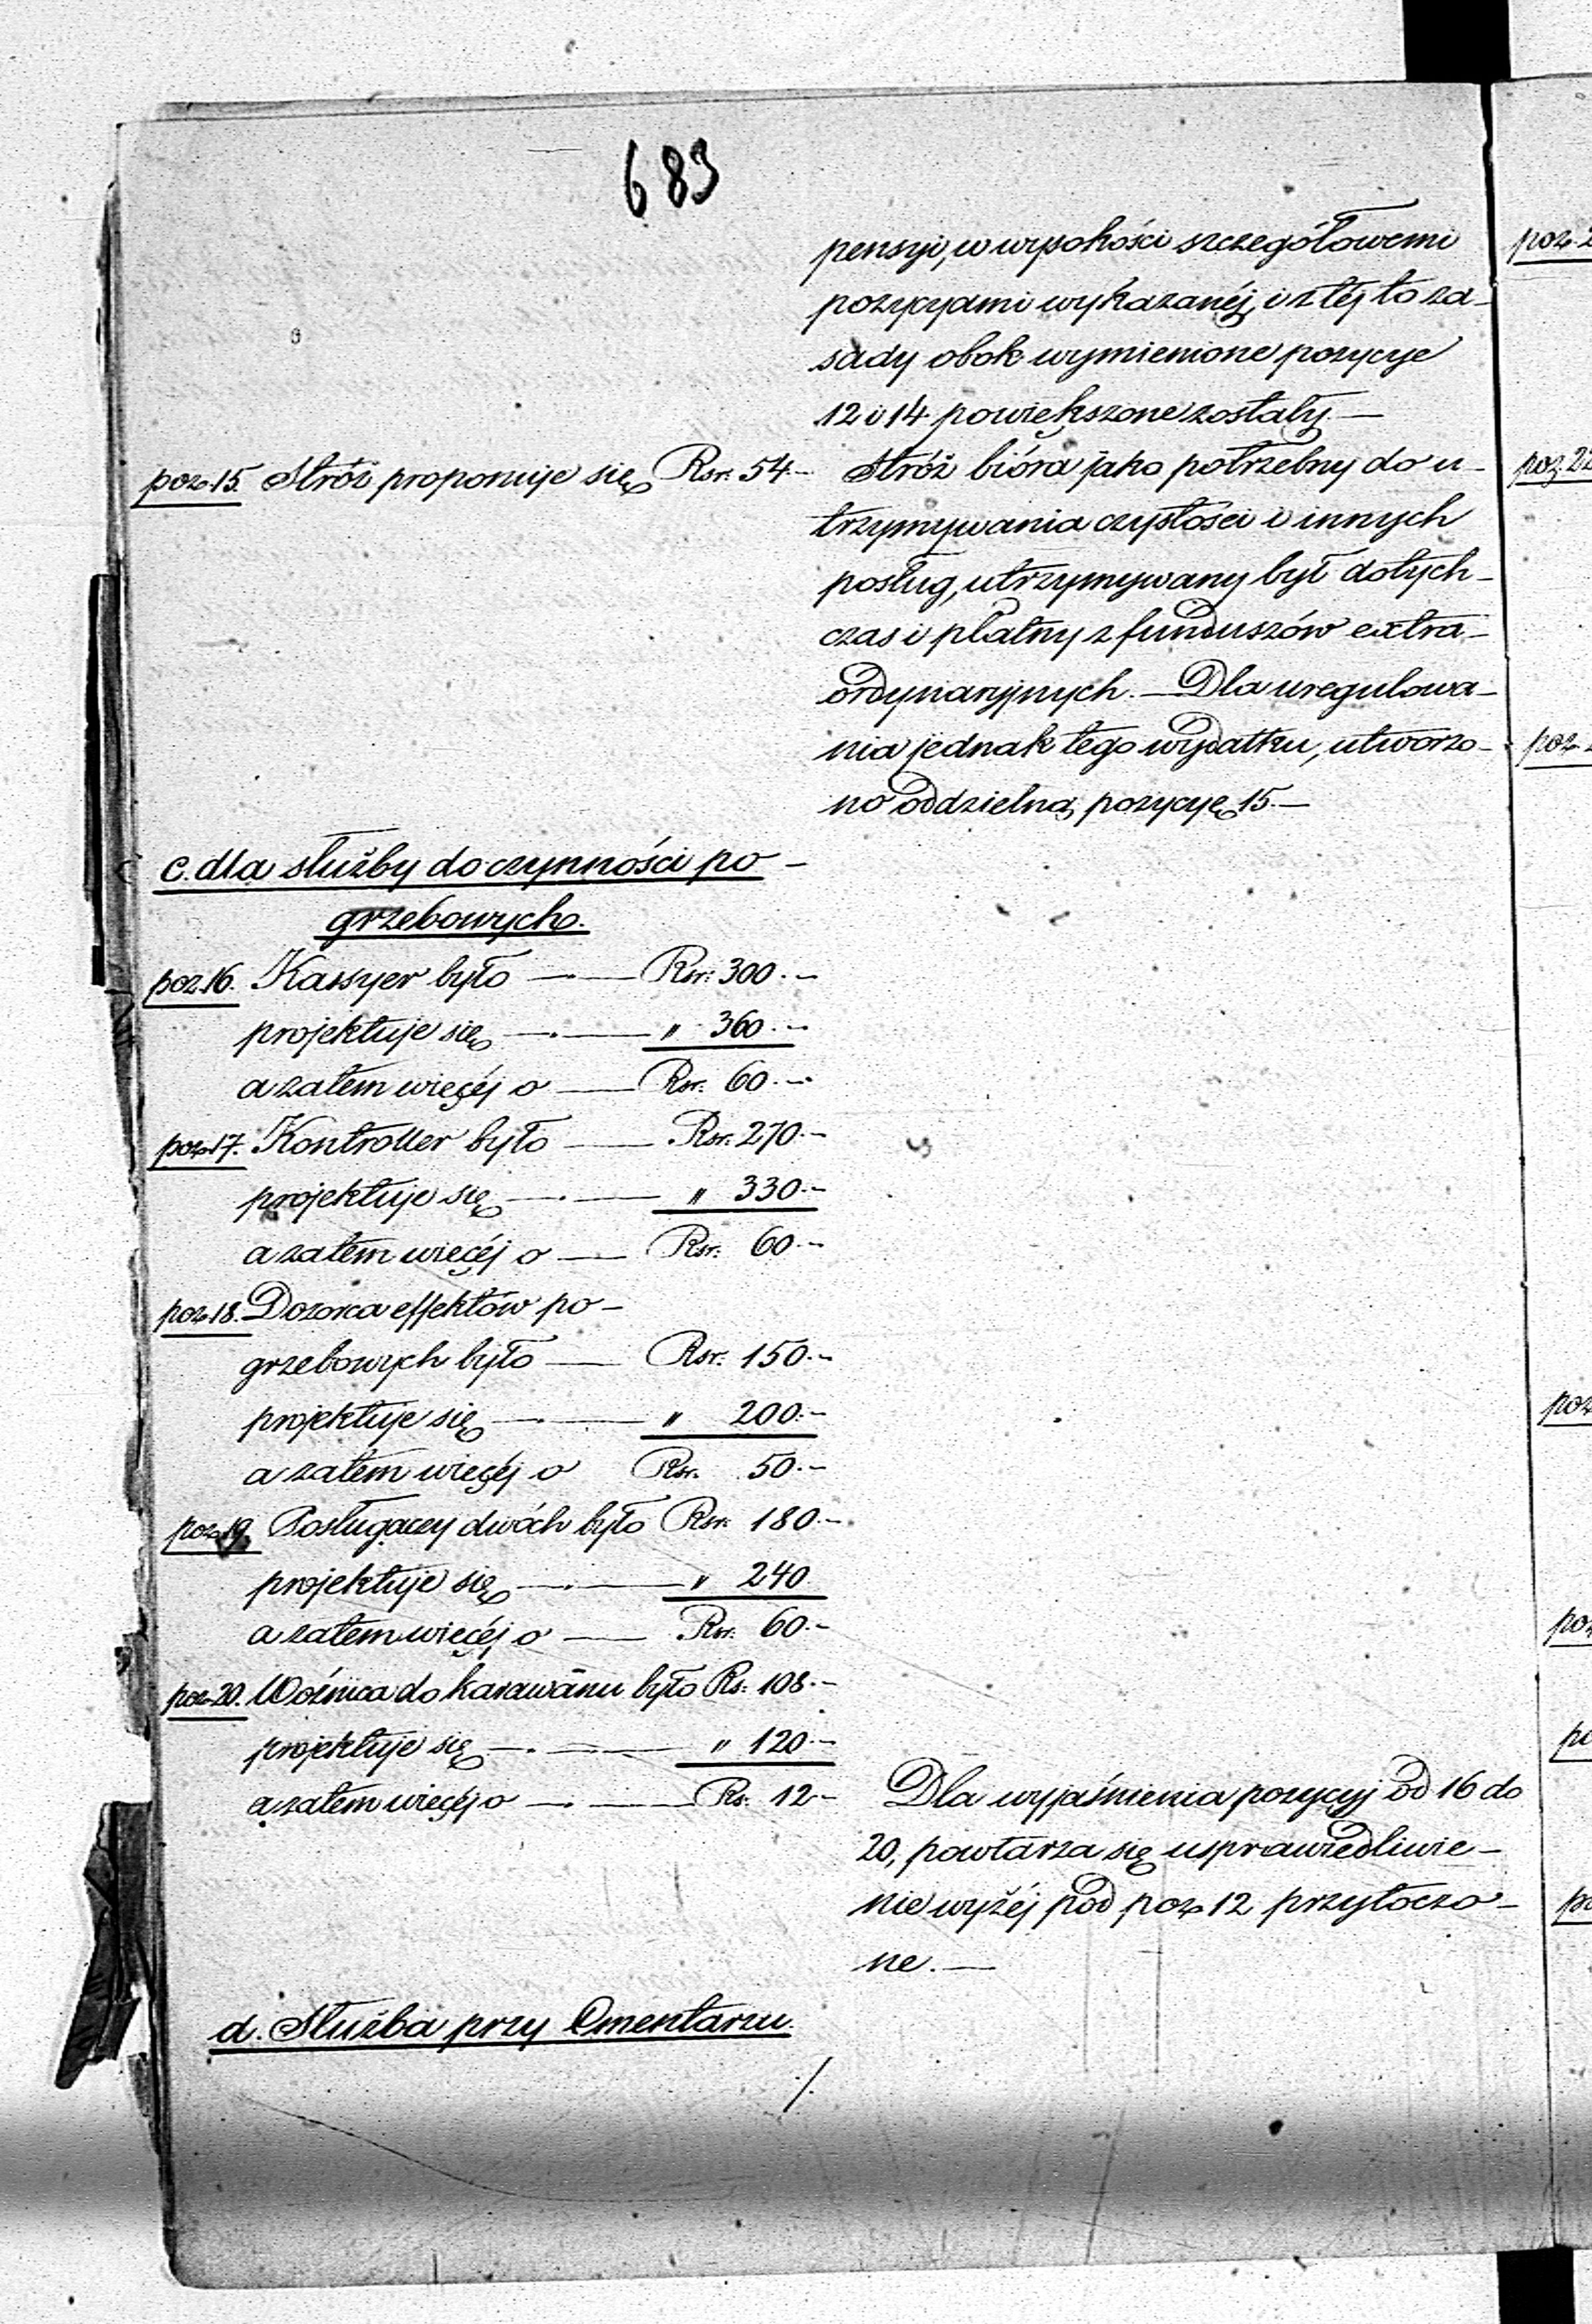 683
pensyi, w wysokości szczegółowemi
pozycyami wykazanéj, i z téj to za-
sady obok wymienione pozycye
12 i 14 powiększone zostały. —
poz. 15. Stróż proponuje się Rsr: 54.-
Stróż bióra jako potrzebny do u-
trzymywania czystości i innych
posług, utrzymywany był dotych-
czas i płatny z funduszów extra-
ordynaryjnych. — Dla uregulowa-
nia jednak tego wydatku, utworzo-
no oddzielną pozycyę 15. —
c. dla służby do czynności po-
grzebowych.
poz. 16. Kassyer było — Rsr: 300.-
projektuje się — " 360.-
a zatem więcéj o — Rsr: 60.-
poz. 17. Kontroller było — Rsr: 270.-
projektuje się — " 330.-
a zatem więcéj o — Rsr: 60.-
poz. 18. Dozorca effektów po-
grzebowych było — Rsr: 150.-
projektuje się — " 200.-
a zatem więcéj o Rsr. 50.-
poz. 19. Posługaczy dwóch było Rsr: 180.-
projektuje się — " 240
a zatem więcéj o — Rsr: 60.-
poz. 20. Woźnica do karawanu było Rs: 108.-
projektuje się — " 120.-
a zatem więcéj o — Rs. 12-
Dla wyjaśnienia pozycyj od 16 do
20, powtarza się usprawiedliwie-
nie wyżéj pod poz. 12 przytoczo-
ne. —
d. Służba przy Cmentarzu.
./.